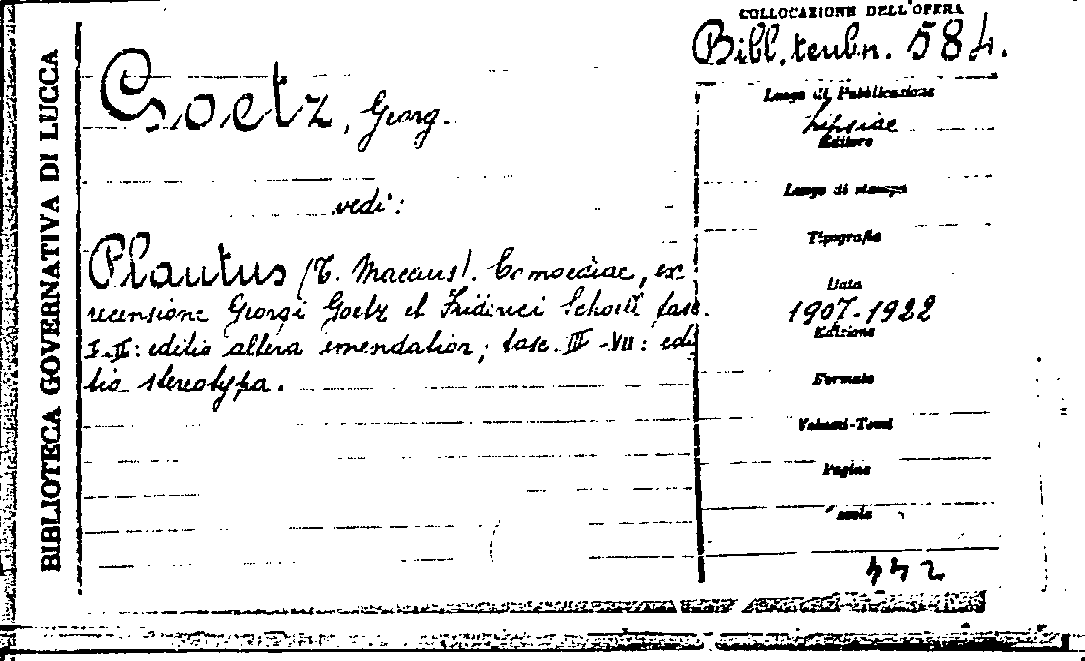 BIBLIOTECA GOVERNATIVA DI LUCCA
COLLOCAZIONE DELL'OPERA
Bibl. teubn. 584.
Goetz, Georg.
vedi:
Plautus (T. Maccius). Comoediae, ex
recensione Georgi Goetz et Friderici Schoell fasc.
I-II: editio altera emendatior; fasc. III-VII: edi
tio stereotypa.
Luogo di Pubblicazione
Lipsiae
Editore
Luogo di stampa
Tipografia
Data
1907-1922
Edizione
Formato
Volumi-Tomi
Pagine